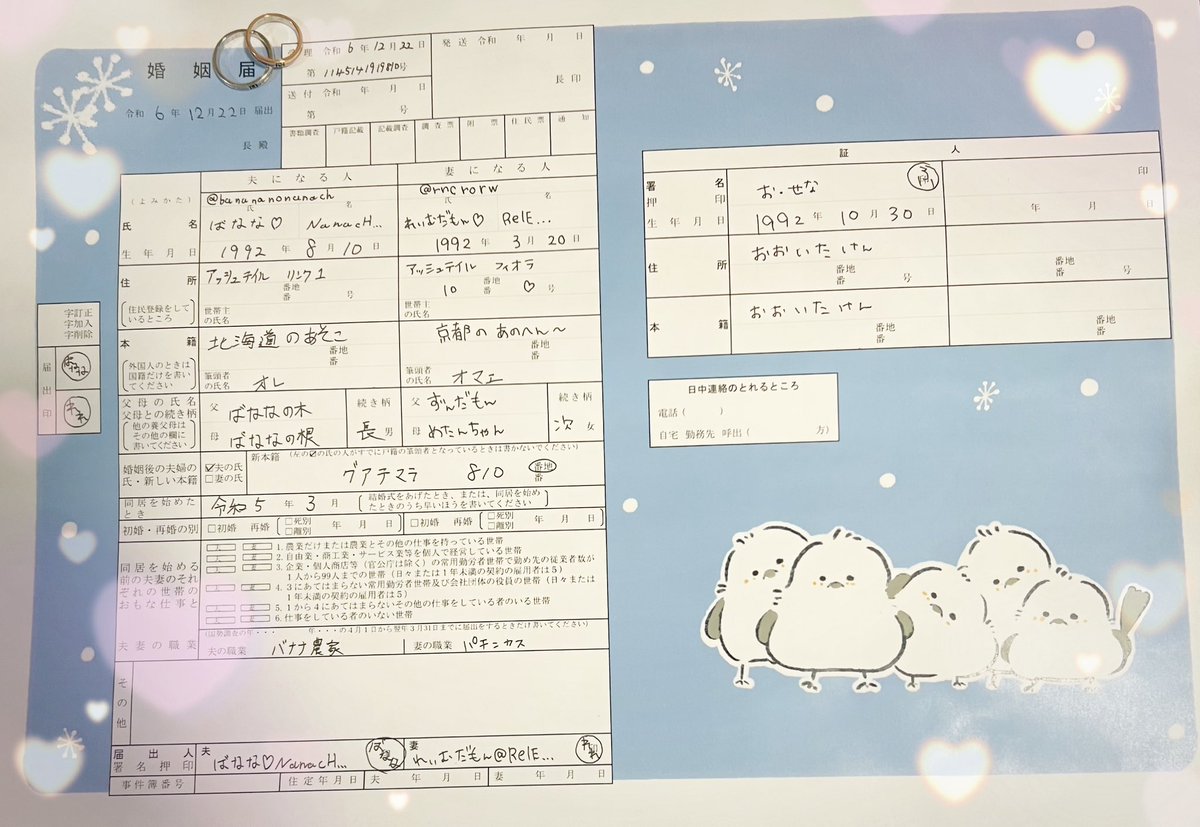 婚姻届
令和 6 年 12 月 22 日 届出
長 殿
受理 令和 6 年 12 月 22 日
第 1145141919810 号
送付 令和 年 月 日
第 号
発送 令和 年 月 日
長 印
書類調査 戸籍記載 記載調査 調査票 附票 住民票 通知
夫になる人 妻になる人
(よみかた) @banananonanach @rncrorw
氏 名 氏 名
氏名 ばなな♡ NanacH... れいむだもん♡ RelE...
生年月日 1992 年 8 月 10 日 1992 年 3 月 20 日
住所 アッシュテイル リンク1 アッシュテイル フィオラ
番地 番 号 10 番地 番 ♡ 号
(住民登録をしているところ)
世帯主の氏名 世帯主の氏名
本籍 北海道のあそこ 京都の あのへん〜
番地 番 番地 番
(外国人のときは国籍だけを書いてください)
筆頭者の氏名 オレ 筆頭者の氏名 オマエ
父母の氏名
父母との続き柄
(他の養父母はその他の欄に書いてください)
父 ばななの木 続き柄 父 ずんだもん 続き柄
母 ばななの根 長 男 母 めたんちゃん 次 女
婚姻後の夫婦の氏・新しい本籍
☑夫の氏
□妻の氏
新本籍(左の☑の氏の人がすでに戸籍の筆頭者となっているときは書かないでください)
グアテマラ 810 番地 番
同居を始めたとき 令和5 年 3 月 (結婚式をあげたとき、または、同居を始めたときのうち早いほうを書いてください)
初婚・再婚の別 □初婚 再婚 (□死別 □離別 年 月 日) □初婚 再婚 (□死別 □離別 年 月 日)
同居を始める前の夫妻のそれぞれの世帯のおもな仕事と
夫 妻 1.農業だけまたは農業とその他の仕事を持っている世帯
夫 妻 2.自由業・商工業・サービス業等を個人で経営している世帯
夫 妻 3.企業・個人商店等(官公庁は除く)の常用勤労者世帯で勤め先の従業者数が1人から99人までの世帯(日々または1年未満の契約の雇用者は5)
夫 妻 4.3にあてはまらない常用勤労者世帯及び会社団体の役員の世帯(日々または1年未満の契約の雇用者は5)
夫 妻 5.1から4にあてはまらないその他の仕事をしている者のいる世帯
夫 妻 6.仕事をしている者のいない世帯
夫妻の職業
(国勢調査の年・・・ 年・・・の4月1日から翌年3月31日までに届出をするときだけ書いてください)
夫の職業 バナナ農家 妻の職業 パチンカス
その他
届出人署名押印 夫 ばなな♡NanacH... ばなな 妻 れいむだもん@RelE...
事件簿番号 住定年月日 夫 年 月 日 妻 年 月 日
字訂正
字加入
字削除
届出印
ばなな
証人
署名押印 お・せな 印
生年月日 1992 年 10 月 30 日 年 月 日
住所 おおいたけん
番地 番 号 番地 番 号
本籍 おおいたけん
番地 番 番地 番
日中連絡のとれるところ
電話( )
自宅 勤務先 呼出( 方)